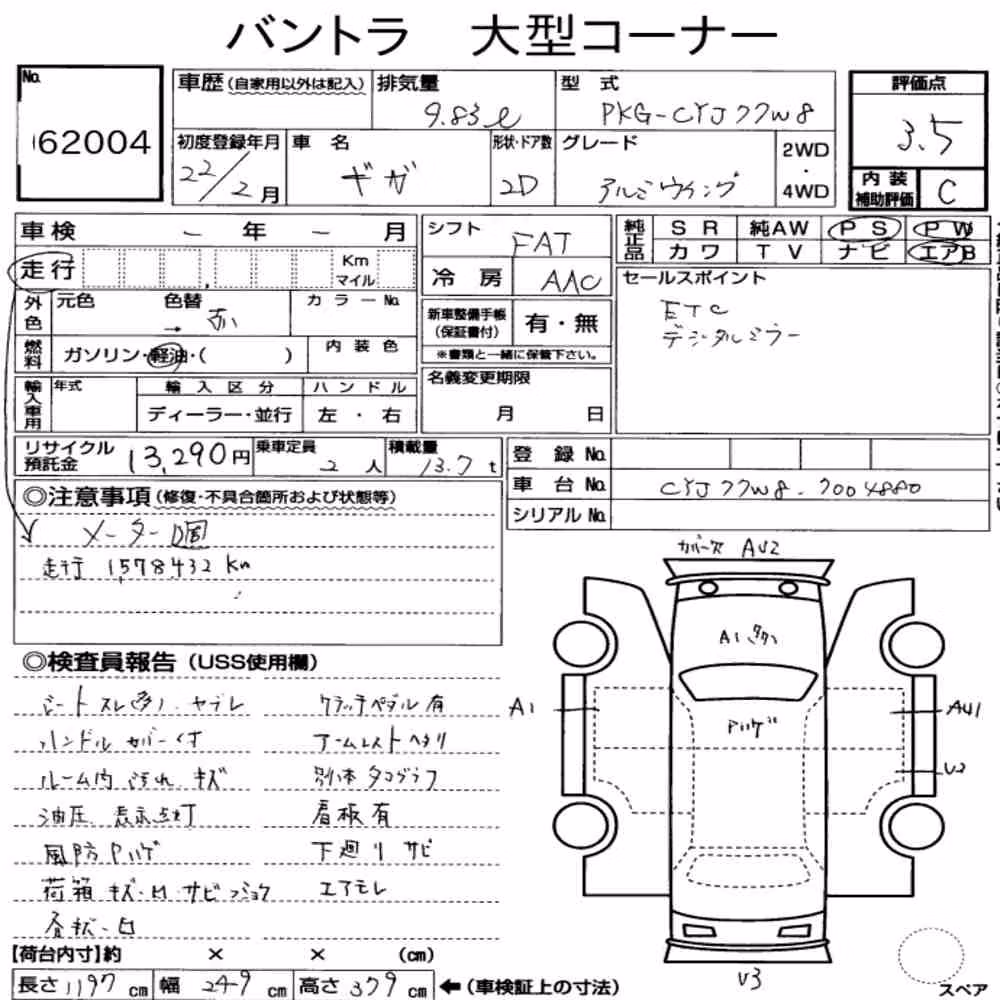 バントラ 大型コーナー
No.
62004
車歴 (自家用以外は記入)
排気量
9.83ℓ
型式
PKG-CYJ77W8
評価点
3.5
初度登録年月
22/2月
車名
ギガ
形状・ドア数
2D
グレード
アルミウイング
2WD
・
4WD
内装
補助評価
C
車検 - 年 - 月
走行
Km
マイル
シフト
FAT
冷房
AAC
純正品
SR 純AW PS PW
カワ TV ナビ エアB
セールスポイント
ETC
デジタルミラー
外色
元色
色替
→ 赤
カラーNo.
燃料
ガソリン・軽油・( )
内装色
新車整備手帳
(保証書付)
有・無
※書類と一緒に保管下さい。
輸入車用
年式
輸入区分
ディーラー・並行
ハンドル
左・右
名義変更期限
月 日
リサイクル
預託金
13,290円
乗車定員
2人
積載量
13.7t
登録No.
車台No.
CYJ77W8-7004880
シリアルNo.
◎注意事項(修復・不具合箇所および状態等)
メーター
走行 1,578,432 Km
◎検査員報告(USS使用欄)
シートスレ(多)・ヤブレ
クラッチペダル有
ハンドルカバー付
アームレストヘタリ
ルーム内 汚れ、キズ
別体タコグラフ
油圧 表示点灯
看板有
風防
下廻りサビ
荷箱 キズ・凹・サビ・フショク
エアモレ
各キズ・凹
カバー欠 AU2
A1
A1
AU1
U3
U3
スペア
【荷台内寸】約 × × (cm)
長さ1197cm 幅249cm 高さ379cm
←(車検証上の寸法)